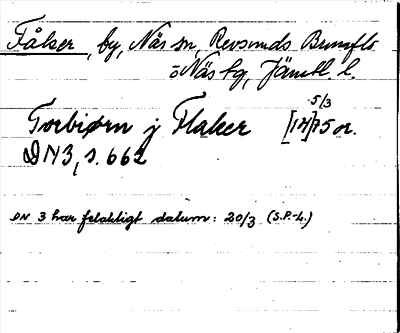 Fåker, by, Näs sn, Revsunds, Brunflo
o Näs tg, Jämtl. l.
5/3
Torbiørn j Flaker [14]75 or.
DN 3, s. 662
DN 3 har felaktigt datum: 20/3 (S.P-L.)